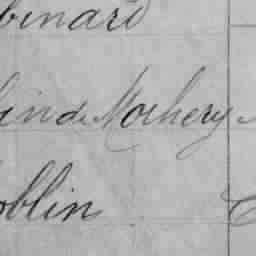 binard
lind Morhery
oblin